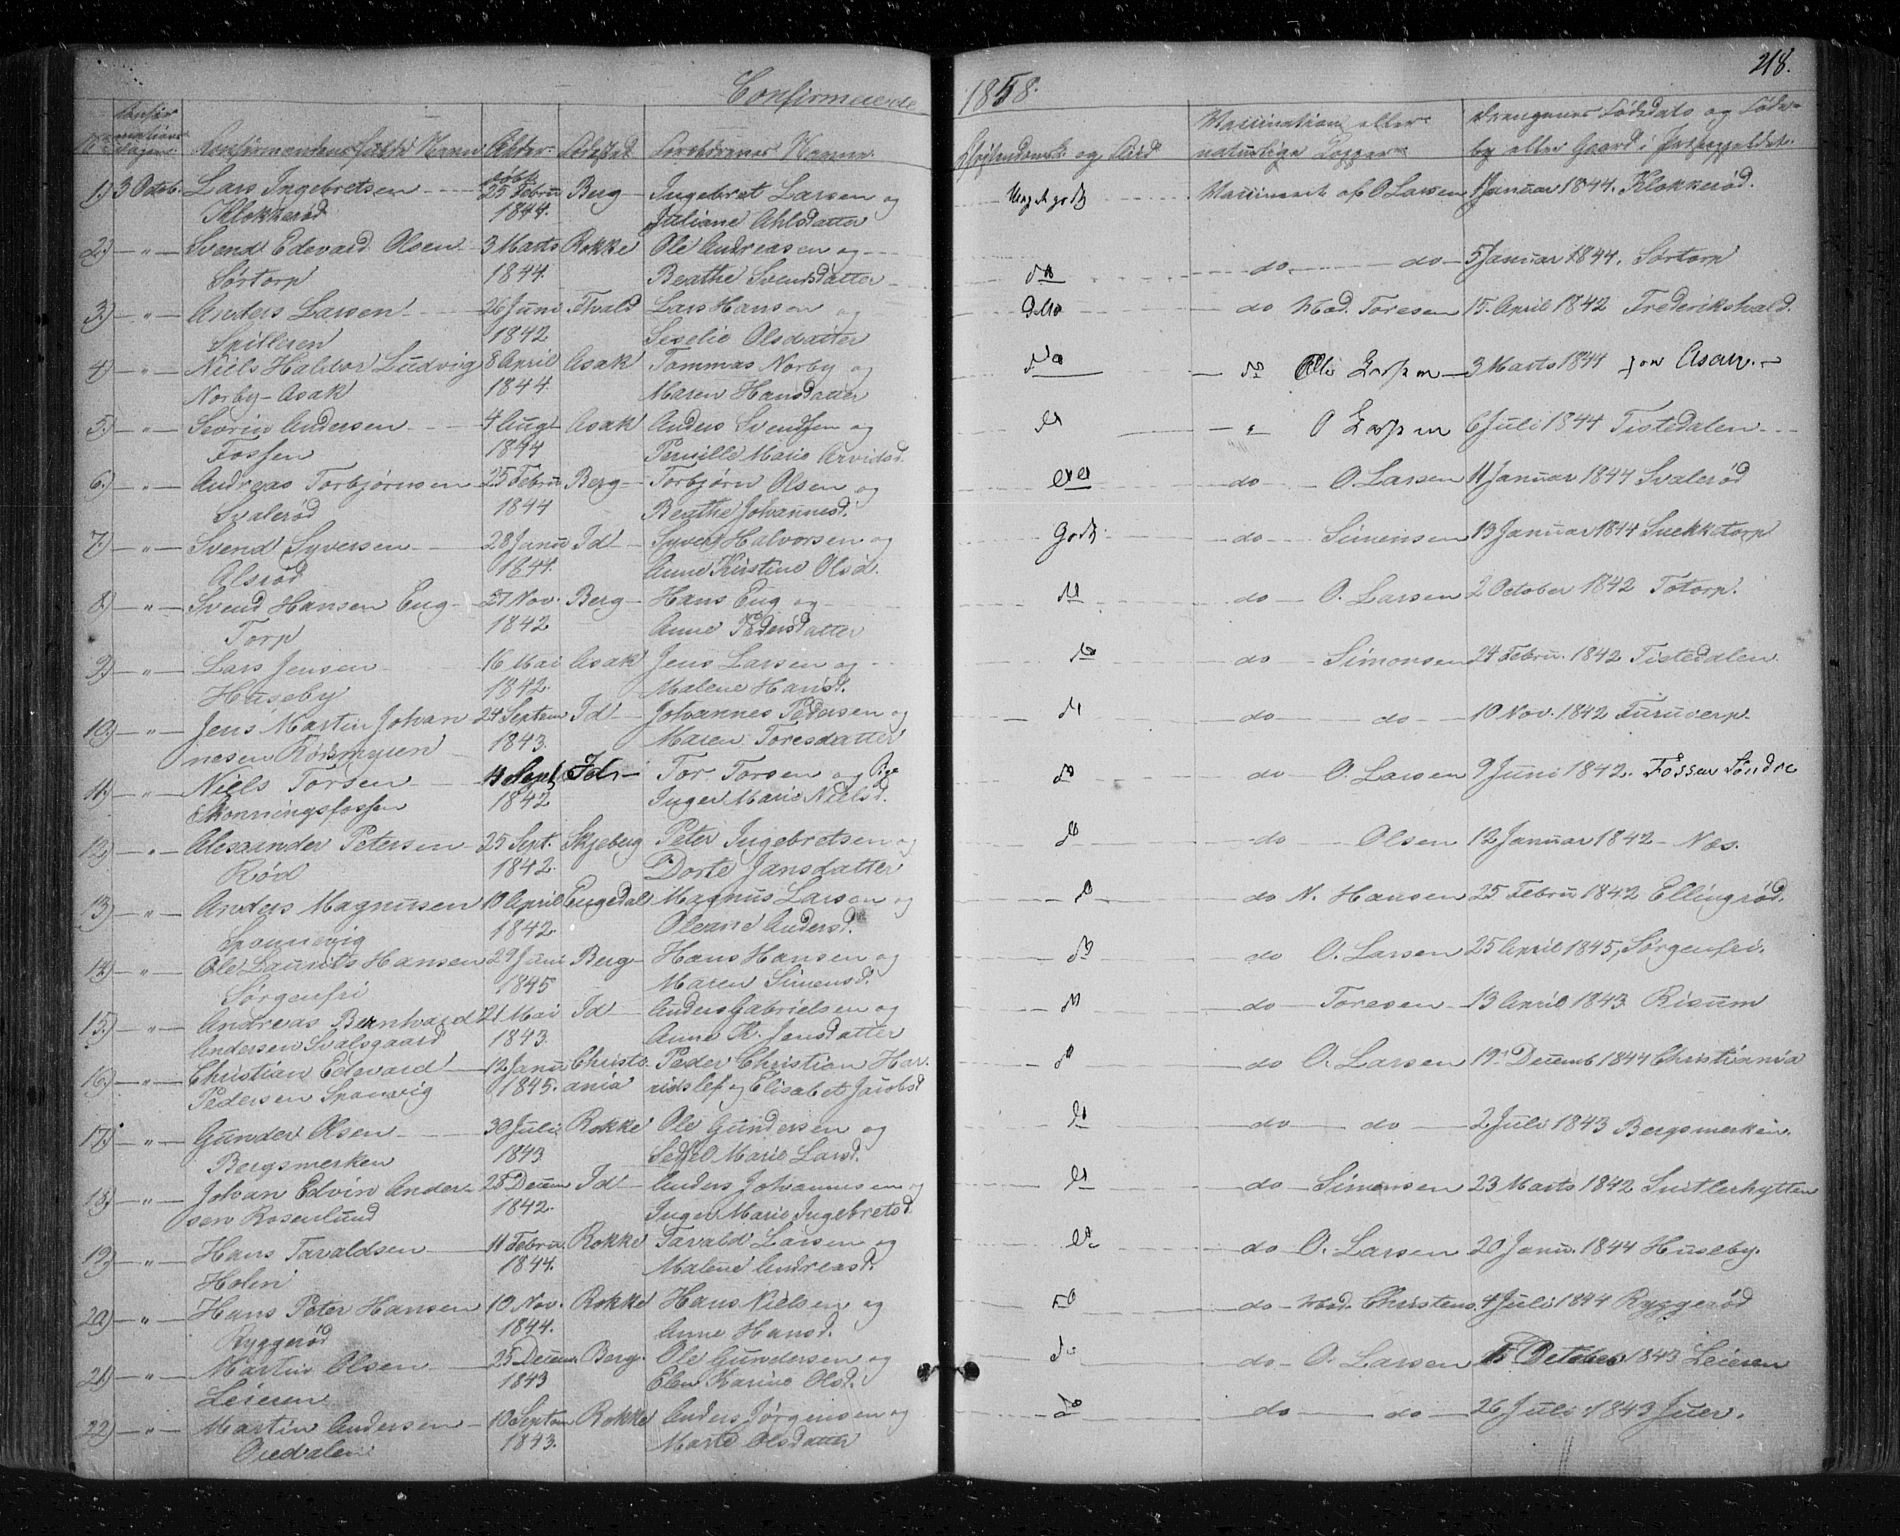 218.
Confirmerede 1858.
Confir
mations
dagen
Confirmandens fulde Navn Alder. Dødssted Forældrenes Navne. og Flid Vaccination eller Drengenes Fødedato og Føde-
naturlige Kopper by eller Gaard i Præstegjeldet.
døbt
1) 3 Octob. Lars Ingebretsen 25 Febru Berg Ingebret Larsen og Meget godt Vaccineret af O Larsen 1 Januar 1844. Klokkerød.
Klokkerød 1844. Juliane Ahlsdatter
2) " Svend Edevard Olsen 3 Marts Rokke Ole Andreasen og do do do 5 Januar 1844. Sørtorp
Sørtorp 1844. Beathe Svensdatter
3) " Anders Larsen 26 Juni Fhald Lars Hansen og Ditto do Mad. Toresen 15. April 1842 Frederikshald.
Spilleren 1842 Seselie Olsdatter
4) " Niels Haldor Ludvig 8 April Asak Tommas Norby og do do Ole Larsen 3 Marts 1844 Asak
Norby-Asak 1844. Maren Hansdatter
5. " Sevrin Andersen 4 Augt Asak Anders Svendsen og do " O Larsen 6 Juli 1844 Tistedalen
Fossen 1844 Pernille Marie Arvidsd.
6. " Andreas Torbjørnsen 25 Febru Berg Torbjørn Olsen og do do O. Larsen 11 Januar 1844 Svalerød
Svalerød 1844 Beathe Johannesd.
7) " Svend Syversen 28 Janu Id Syver Halvorsen og Godt do Simensen 13 Januar 1844 Snekketorp
Alsrød 1844. Anne Kirstine Olsd.
8) " Svend Hansen Eng 27 Nov. Berg Hans Eng og do do O. Larsen 2 October 1842 Totorp.
Torp 1842 Anne Pedersdatter
9) " Lars Jensen 16 Mai Asak Jens Larsen og do do Simonsen 24 Febru. 1842 Tistedalen
Huseby 1842. Malene Hansd.
10) " Jens Martin Johan 24 Septem Id Johannes Pedersen og do do do 10 Nov. 1842
nesen Kørsmyren 1843. Maren Toresdatter
11) " Niels Torsen 11 Sept Id Tor Torsen og do do O. Larsen 9 Juni 1842. Fossen Søndre
Skonningsfossen 1842 Inger Marie Nielsd.
12) " Alexander Petersen 25 Sept. Skjeberg Peter Ingebretsen og do do Olsen 12 Januar 1842 Næs.
Rød 1842. Dorte Jansdatter
13) " Anders Magnusen 10 April Engedal Magnus Larsen og do do N. Hansen 25 Febru 1842 Ellingsrød.
Sponvig 1842. Oleane Andersd.
14) " Ole Laurits Hansen 29 Juni Berg Hans Hansen og do do O. Larsen 25 April 1845, Sørgenfri.
Sørgenfri 1845 Maren Simensd.
15.) " Andreas Bernhard 21 Mai Id Anders Gabrielsen og do do Toresen 13 April 1843 Risum
Andersen Svalsgaard 1843. Anne K. Jensdatter
16.) " Christian Edvard 12 Janu Christi Peder Christian Har- do do O. Larsen 19 Decemb 1844 Christiania
Pedersen Sponvig 1845. ania ridslef og Elisabet Jacobsd
17) " Gunder Olsen 30 Juli Rokke Ole Gundersen og do do do 2 Juli 1843 Bergsmerken.
Bergsmerken 1843 Sedsel Marie Larsd.
18) " Johan Edvin Ander- 28 Decem Id Anders Johannesen og do do Simensen 23 Marts 1842 Snitlerhytten
sen Rosenlund 1842. Inger Marie Ingebretsd
19) " Hans Tavaldsen 11 Febru. Rokke Tavald Larsen og do do O. Larsen 20 Janu. 1844 Huseby.
Holen 1844. Malene Andreasd.
20) " Hans Peter Hansen 10 Nov. Rokke Hans Nielsen og do do Mad. Christens. 4 Juli 1844 Ryggerød
Ryggerød 1844. Anne Hansd.
21) " Martin Olsen 25 Decem. Berg. Ole Gundersen og do do O. Larsen 15 October 1843 Leieren
Leieren 1843 Elen Karine Olsd.
22) " Martin Andersen 10 Septem Rokke Anders Jørgensen og do do do 26 Juli 1843 Juer.
1843. Marte Olsdatter